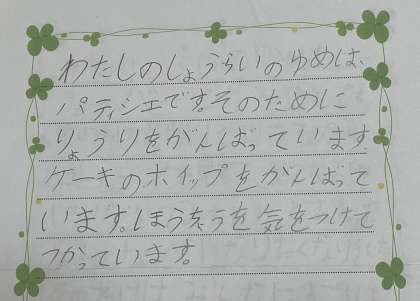 わたしのしょうらいのゆめは、
パティシエです。そのために
りょうりをがんばっています
ケーキのホイップをがんばって
います。ほうちょうを気をつけて
つかっています。